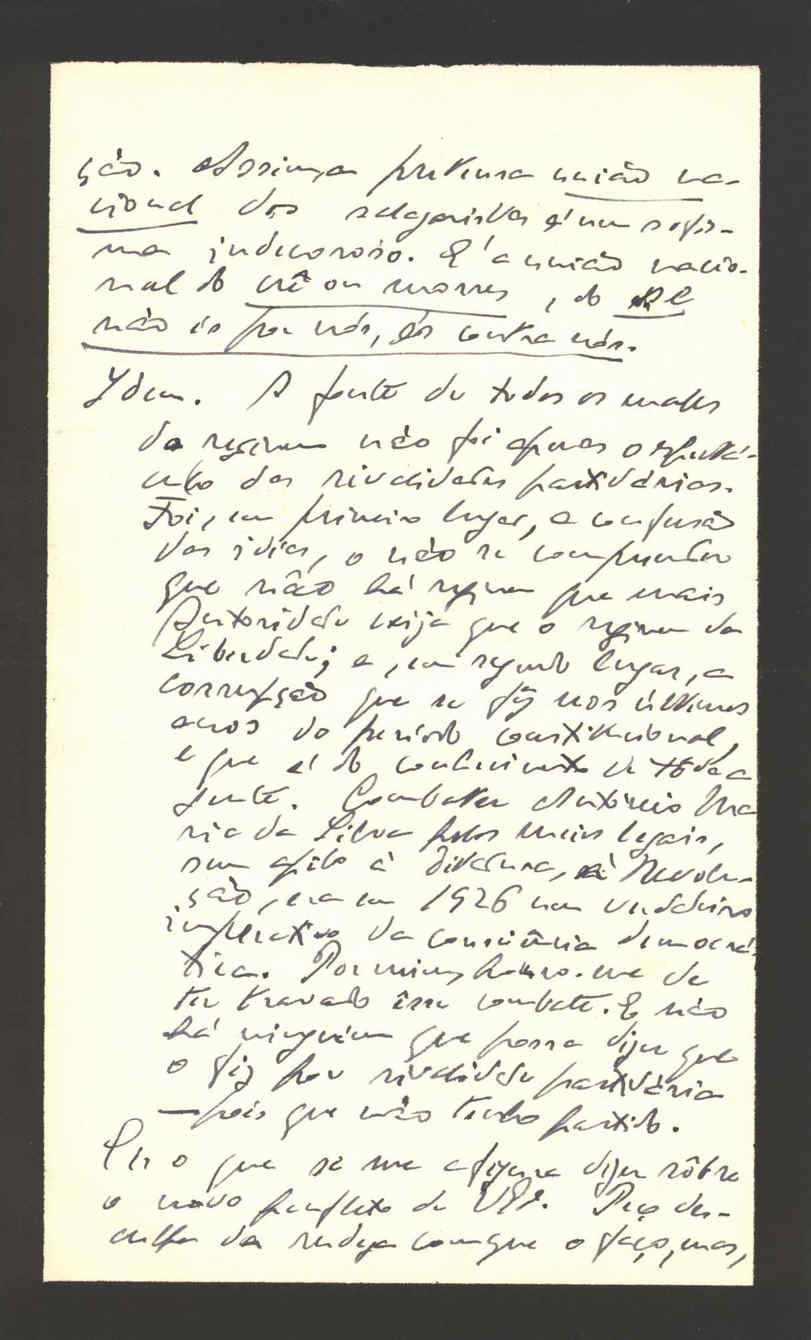 ção. A pretensa união na-
cional dos salazaristas é um sofis-
ma indecoroso. É a união nacio-
nal do crê ou morres, do se
não és por nós, és contra nós.
Idem. A fonte de todos os males
do regimen não foi apenas o espectá-
culo das rivalidades partidárias.
Foi, em primeiro lugar, a confusão
das ideias, o não se compreender
que não há regimen que mais
Autoridade exija que o regimen da
Liberdade; e, em segundo lugar, a
corrupção que se fez nos últimos
anos do período constitucional,
e que é do conhecimento de tôda a
gente. Combater António Ma
ria da Silva pelos meios legais,
sem apêlo à Ditadura, à Revolu-
ção, era em 1926 um verdadeiro
imperativo da consciência democrá-
tica. Por mim, honro-me de
ter travado êsse combate. E não
há ninguém que possa dizer que
o fiz por rivalidade partidária
— pois que não tenho partido.
Eis o que se me afigura dizer sôbre
o novo panfleto de Peço des-
culpa da rudeza com que o faço, mas,